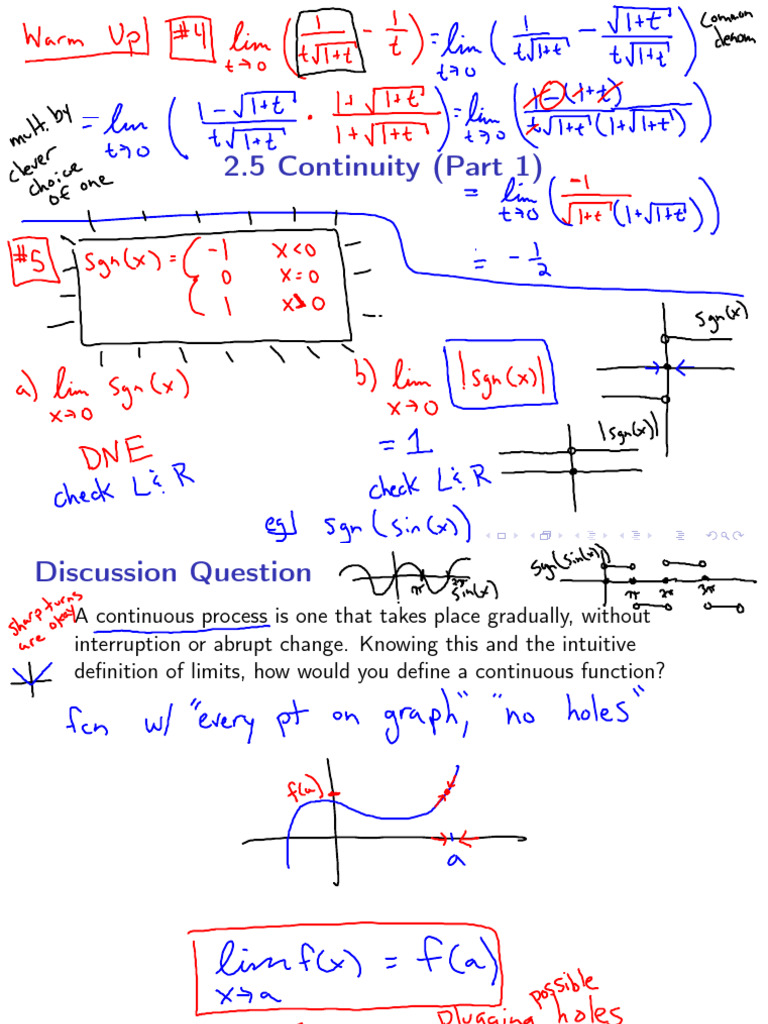 Warm Up #4 lim t→0 ( 1/(t√(1+t)) - 1/t ) = lim t→0 ( 1/(t√(1+t)) - √(1+t)/(t√(1+t)) ) Common denom
mult. by clever choice of one
= lim t→0 ( (1-√(1+t))/(t√(1+t)) · (1+√(1+t))/(1+√(1+t)) ) = lim t→0 ( (1-(1+t))/(t√(1+t)(1+√(1+t))) )
2.5 Continuity (Part 1)
= lim t→0 ( -1/(√(1+t)(1+√(1+t))) )
= -1/2
#5 sgn(x) = { -1 x<0
0 x=0
1 x>0
sgn(x)
a) lim x→0 sgn(x)
b) lim x→0 |sgn(x)|
|sgn(x)|
DNE
= 1
check L & R
check L & R
eg) sgn(sin(x))
Discussion Question
π 2π sin(x)
sgn(sin(x)) π 2π 3π
sharp turns are okay
A continuous process is one that takes place gradually, without
interruption or abrupt change. Knowing this and the intuitive
definition of limits, how would you define a continuous function?
fcn w/ "every pt on graph", "no holes"
f(a)
a
lim x→a f(x) = f(a)
plugging possible holes